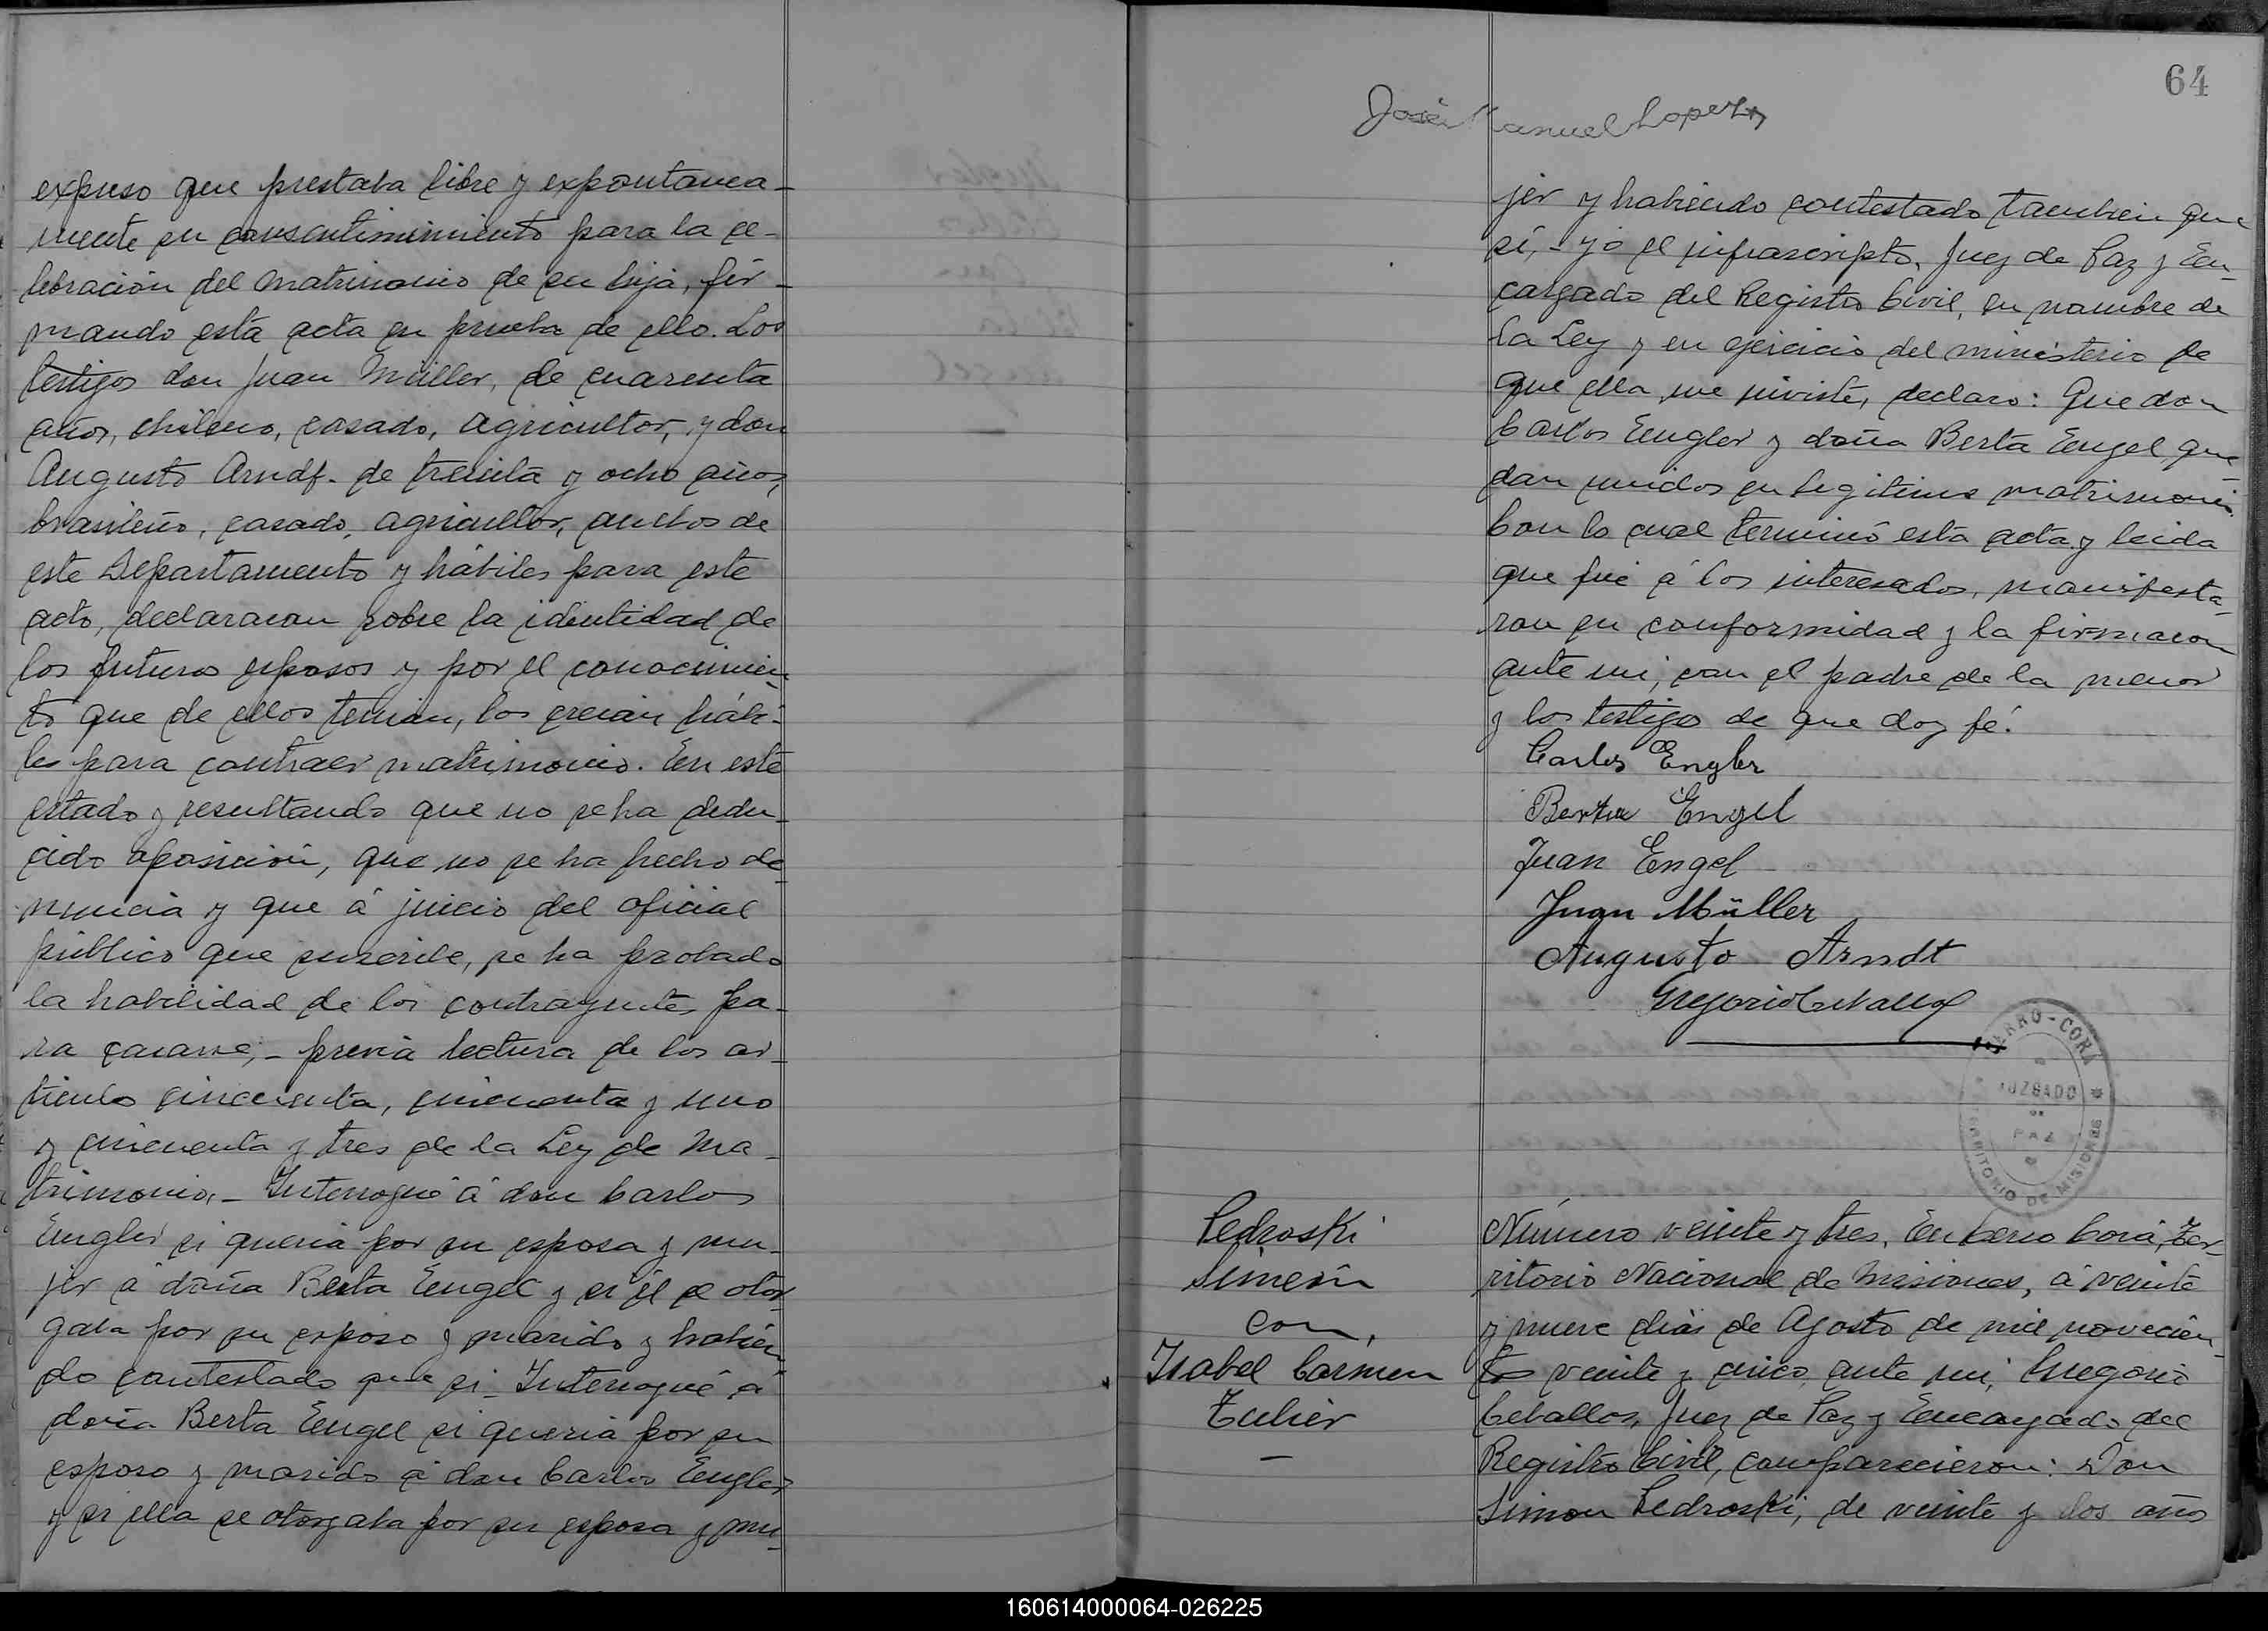 expuso que prestaba libre y expontanea-
mente su consentimimiento para la ce-
lebración del matrimonio de su hija, fir-
mando esta acta en prueba de ello. Los
testigos don Juan Müller, de cuarenta
años, chileno, casado, agricultor, y don
Augusto Arndf. de treinta y ocho años,
brasileño, casado, agricultor, ambos de
este Departamento y hábiles para este
acto, declararon sobre la identidad de
los futuros esposos y por el conocimien-
to que de ellos tenian, los creian hábi-
les para contraer matrimonio. En este
estado y resultando que no se ha dedu-
cido oposición, que no se ha hecho de-
nuncia y que á juicio del oficial
público que suscribe, se ha probado
la habilidad de los contrayentes pa-
ra casarse,- previa lectura de los ar-
ticulos cincuenta, cincuenta y uno
y cincuenta y tres de la Ley de Ma-
trimonio,- Interrogué á don Carlos
Engler si queria por su esposa y mu-
jer á doña Berta Engel y si él se otor-
gaba por su esposo y marido y habien-
do contestado que si- Interrogué á
doña Berta Engel si queria por su
esposo y marido á don Carlos Engler
y si ella se otorgaba por su esposa y mu-
64
José Manuel Lopez
jer y habiendo contestado tambien que
sí,- yo el infrascripto, Juez de Paz y En-
cargado del Registro Civil, en nombre de
la Ley y en ejercicio del ministerio de
que ella me inviste, declaro: Que don
Carlos Engler y doña Berta Engel que
dan unidos en legitimo matrimonio.
Con lo cual terminó esta acta y leida
que fué á los interesados, manifesta-
ron su conformidad y la firmaron
ante mi, con el padre de la menor
y los testigos de que doy fé.
Carlos Engler
Berta Engel
Juan Engel
Juan Müller
Augusto Arndt
Gregorio Ceballos
CERRO-CORÁ
JUZGADO
DE
PAZ
TERRITORIO DE MISIONES
Pedroski
Simeón
con,
Isabel Carmen
Tulier
—
Número veinte y tres, En Cerro Corá, Ter-
ritorio Nacional de Misiones, á veinte
y nueve dias de Agosto de mil novecien-
tos veinte y cinco, ante mi, Gregorio
Ceballos, Juez de Paz y Encargado del
Registro Civil, comparecieron: Don
Simon Pedroski, de veinte y dos años